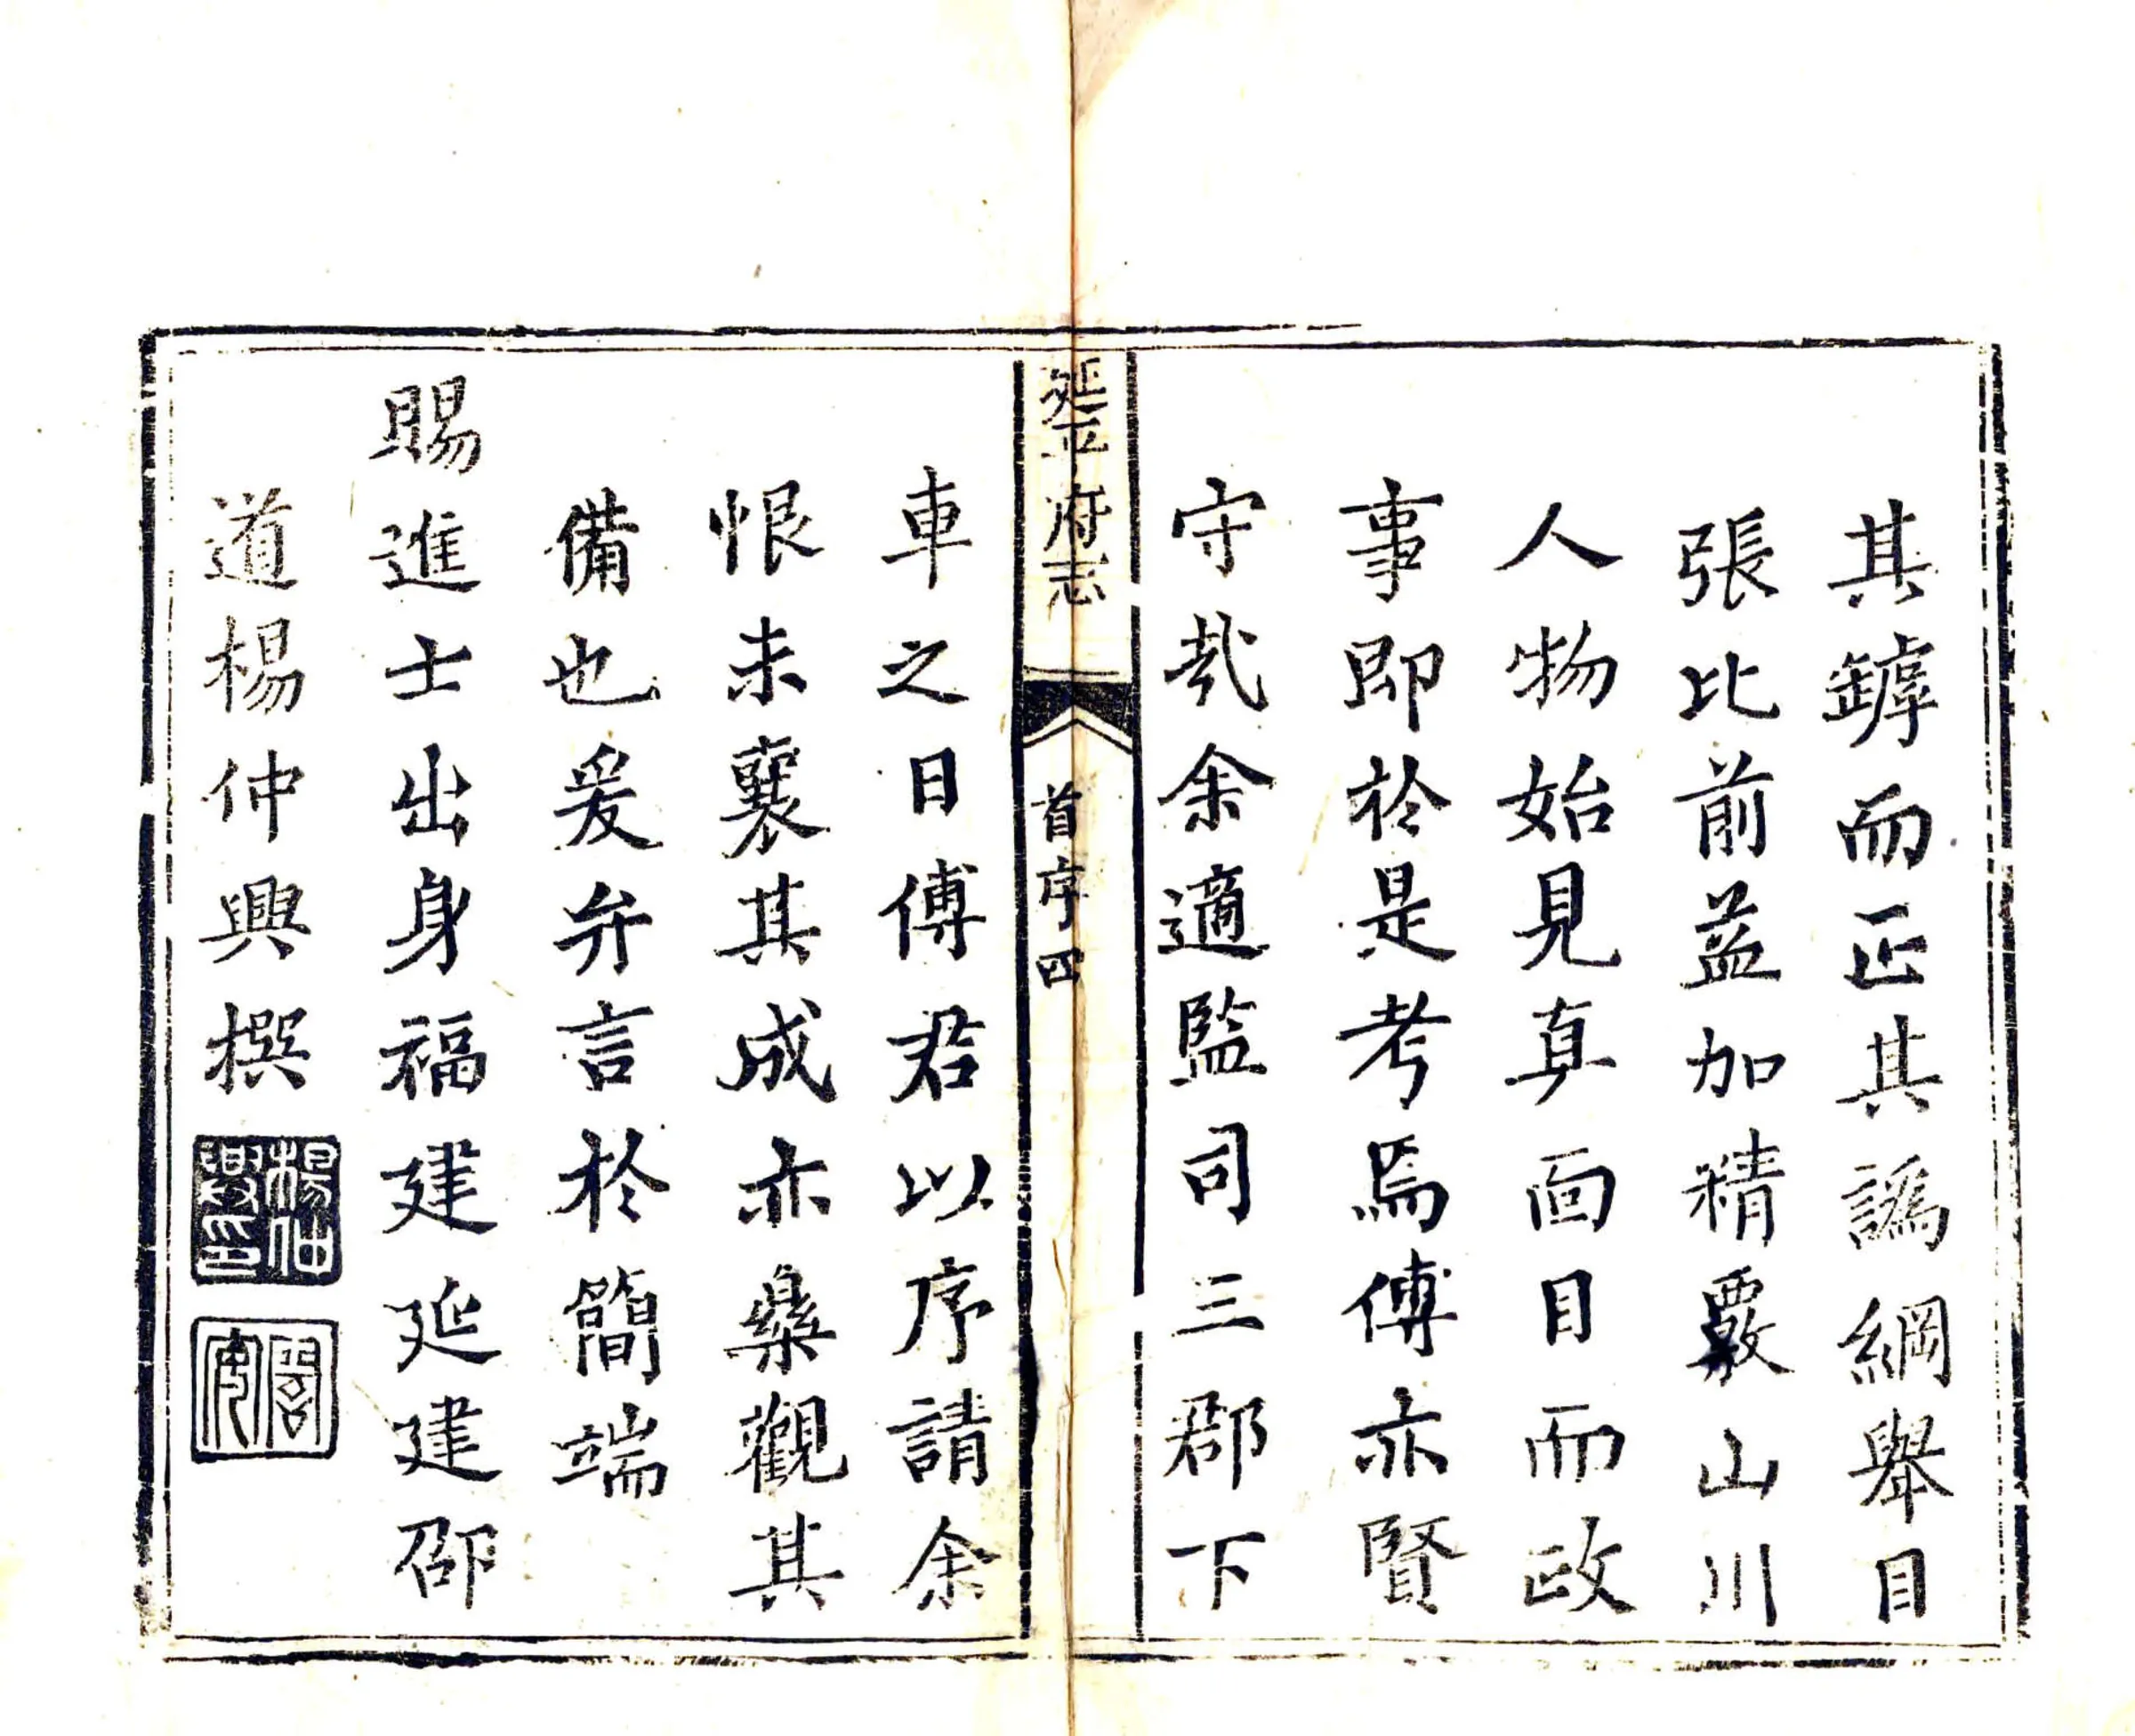 其罅而正其譌綱舉目
張比前益加精覈山川
人物始見真面目而政
事即於是考焉傅亦賢
守哉余適監司三郡下
延平府志
首序四
車之日傅君以序請余
恨未襄其成亦樂觀其
備也爰弁言於簡端
賜進士出身福建延建邵
道楊仲興撰
楊仲
興印